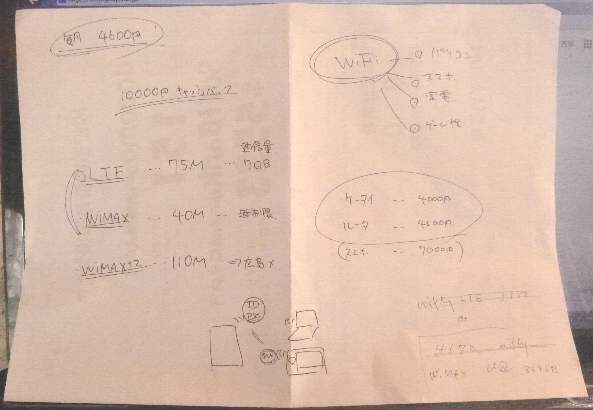 毎月 4600円
10000円 キャッシュバック
通信量
LTE … 75M … 7GB
WiMAX … 40M … 無制限
WiMAX2 … 110M ⇒ 広島×
ID
PK
WiFi
パソコン
スマホ
家電
ゲーム機
ケータイ … 4000円
ルータ … 4600円
(スマホ … 7000円)
nifty LTE
nifty
WiMAX UQ